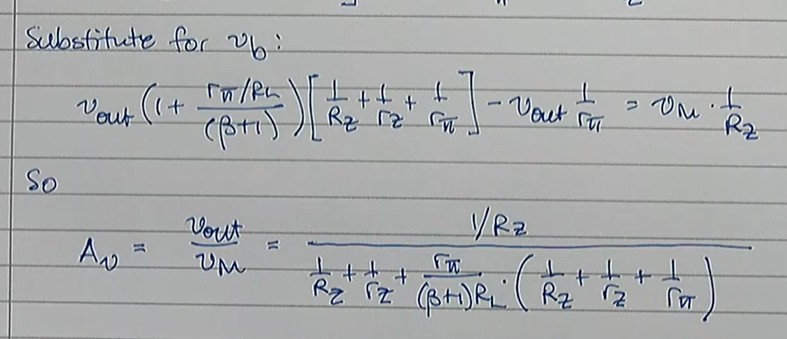 Substitute for v_b :
v_out (1 + (r_π/R_L)/(β+1)) [1/R_Z + 1/r_Z + 1/r_π] - v_out 1/r_π = v_M · 1/R_Z
So
A_v = v_out/v_M = (1/R_Z) / (1/R_Z + 1/r_Z + r_π/((β+1)R_L) · (1/R_Z + 1/r_Z + 1/r_π))